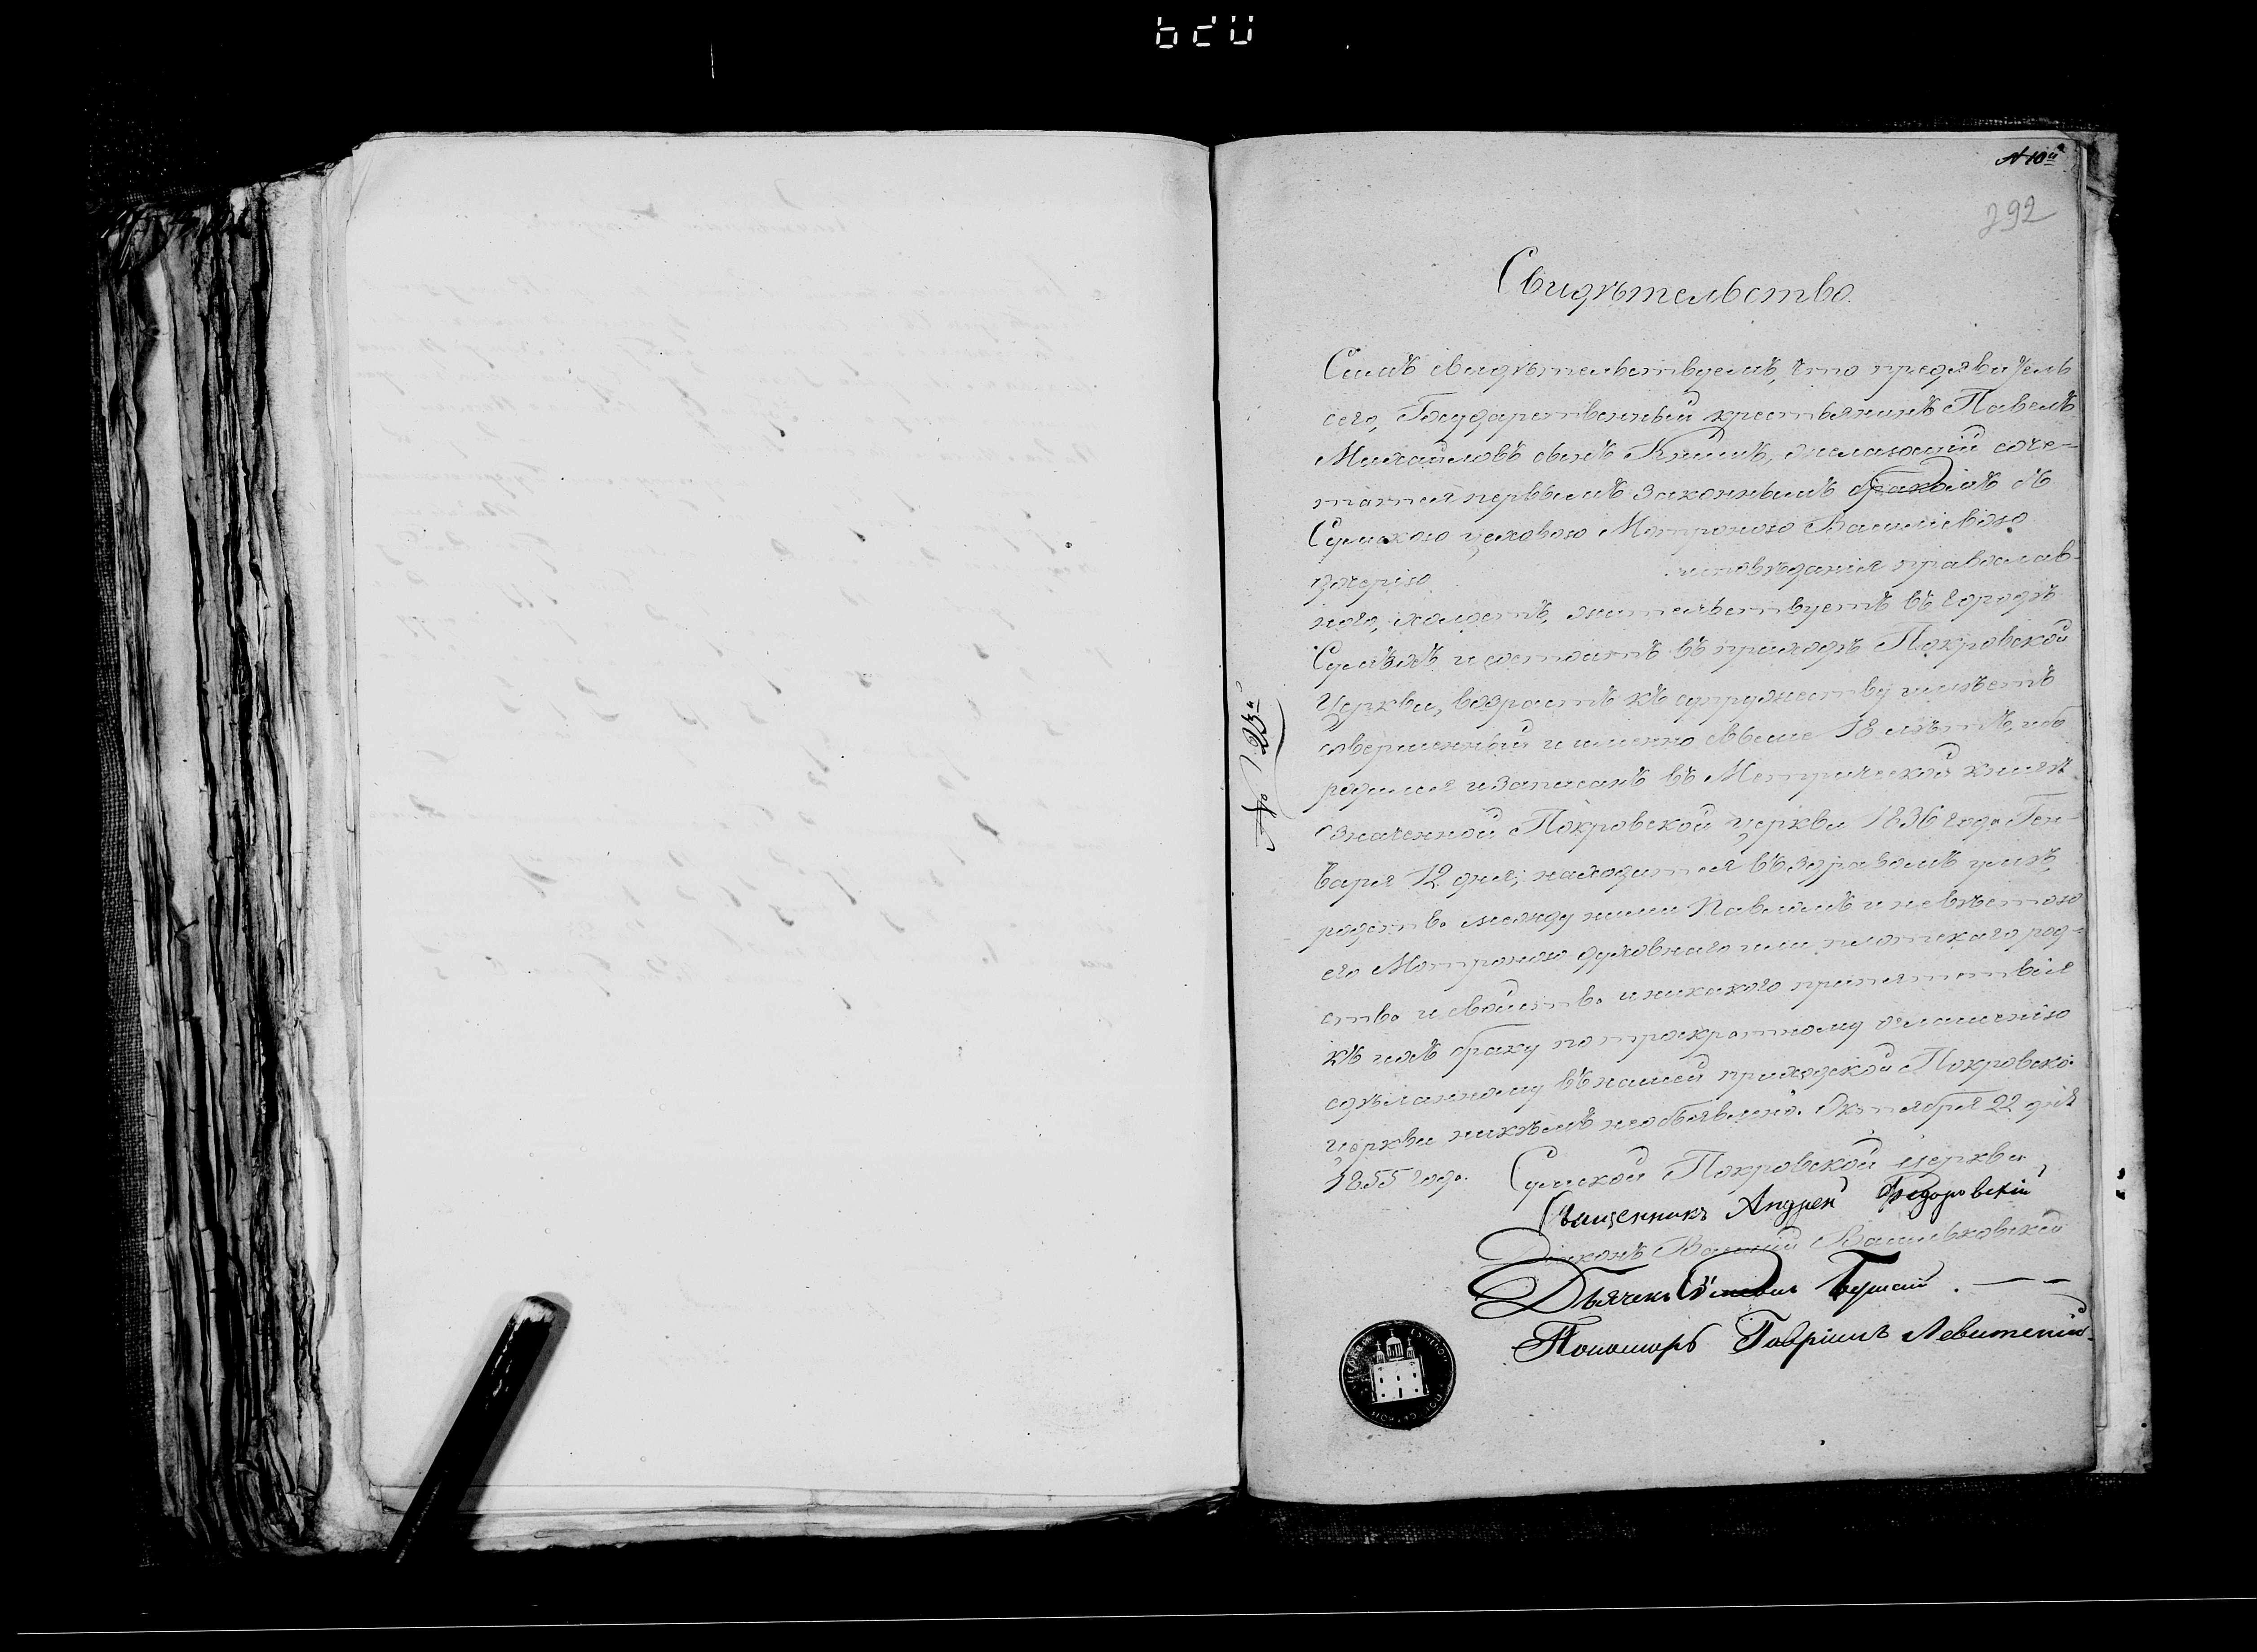 № 10й
292
Свидѣтельство.
Симъ свидѣтельствуемъ, что предъявитель
сего, Государственный крестьянинъ Павелъ
Михайловъ сынъ желающій соче-
таться первымъ законнымъ бракомъ съ
Сумскою цеховою Матроною Васильевою
дочерью исповѣданія православ-
ного, холостъ, жительствуетъ въ городѣ
Сумахъ и состоитъ въ приходѣ Покровской
Церкви, возрастъ къ супружеству имѣетъ
совершенный и именно свыше 18 лѣтъ, ибо
родился и записанъ въ Метрической книгѣ
означенной Покровской церкви 1836 года Ген-
варя 12 дня; находится въ здравомъ умѣ,
родство между ними Павломъ и невѣстою
его Матроною духовнаго или плотскаго род-
ство и свойство и никакого припятствія
къ ихъ браку по троекратному оглашенію
сдѣланному въ нашей приходской Покровской
церкви никѣмъ необъявлено. Октября 22 дня
1855 года. Сумской Покровской церкви
Священникъ Андрей Федоровскій
Діаконъ Василій Васильковскій
Дьячекъ
Пономарь Гавріилъ Левитскій
№ 23й